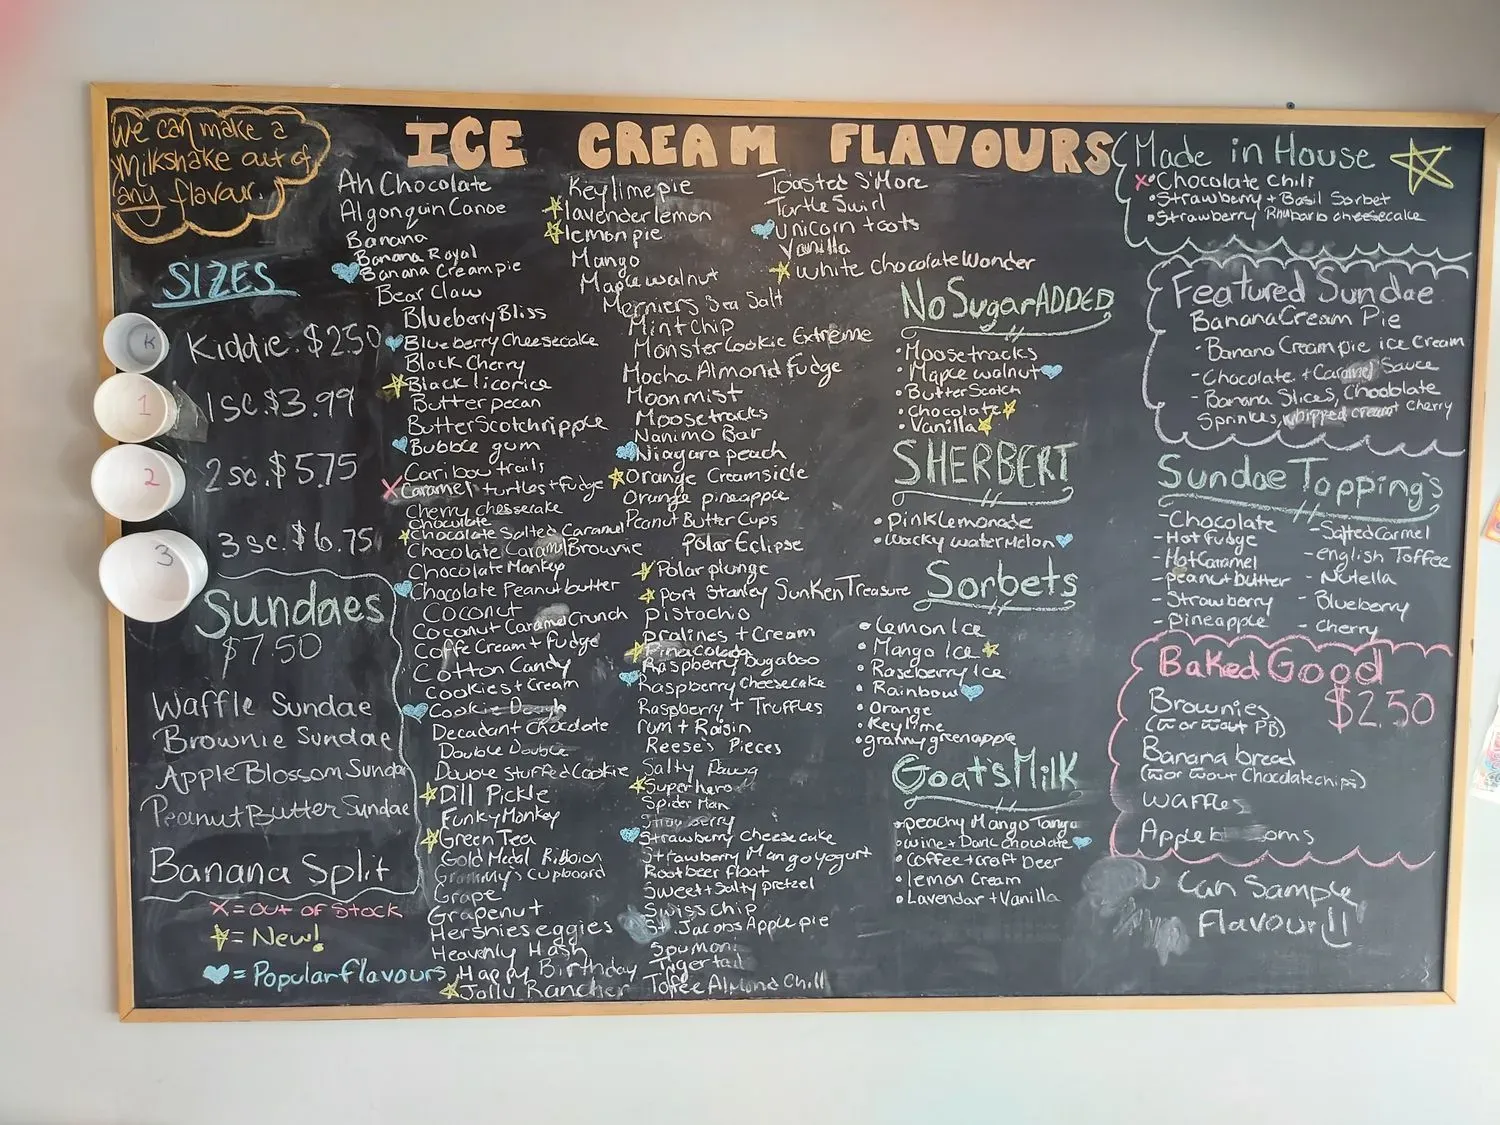 We can make a
milkshake out of
any flavour.
ICE CREAM FLAVOURS
SIZES
K
Kiddie. $2.50
1
1 sc. $3.99
2
2 sc. $5.75
3
3 sc. $6.75
Sundaes
$7.50
Waffle Sundae
Brownie Sundae
Apple Blossom Sundae
Peanut Butter Sundae
Banana Split
X = out of stock
= New!
= Popular flavours
Ah Chocolate
Algonquin Canoe
Banana
Banana Royal
Banana Creampie
Bear Claw
Blueberry Bliss
Blueberry Cheesecake
Black Cherry
Black licorice
Butter pecan
ButterScotchripple
Bubble gum
Caribou trails
X Caramel + turtles + fudge
Cherry cheesecake
Chocolate
Chocolate Salted Caramel
Chocolate Caramel Brownie
Chocolate Monkey
Chocolate Peanutbutter
Coconut
Coconut Caramel Crunch
Coffe Cream + Fudge
Cotton Candy
Cookies + Cream
Cookie Dough
Decadant Chocolate
Double Double
Double stuffed Cookie
Dill Pickle
Funky Monkey
Green Tea
Gold Medal Ribbion
Grammy's Cupboard
Grape
Grapenut
Hershies eggies
Heavenly Hash
Happy Birthday
Jolly Rancher
Keylime pie
lavender lemon
lemon pie
Mango
Maple walnut
Merniers Sea Salt
Mint Chip
Monster Cookie Extreme
Mocha Almond Fudge
Moonmist
Moosetracks
Nanimo Bar
Niagara peach
Orange Creamsicle
Orange pineapple
Peanut Butter Cups
Polar Eclipse
Polar plunge
Port Stanley Sunken Treasure
Pistachio
Pralines + Cream
Pinacolada
Raspberry Bugaboo
Raspberry Cheesecake
Raspberry + Truffles
rum + Raisin
Reese's Pieces
Salty Dawg
Superhero
Spider Man
Strawberry
Strawberry Cheesecake
Strawberry Mango yogurt
Rootbeer float
Sweet + Salty pretzel
Swiss chip
St. Jacobs Apple pie
Spumoni
Tigertail
Tofee Almond Chill
Toasted S'More
Turtle Swirl
Unicorn toots
Vanilla
White Chocolate Wonder
No Sugar ADDED
• Moosetracks
• Maple walnut
• ButterScotch
• Chocolate
• Vanilla
SHERBERT
• Pink Lemonade
• Wacky watermelon
Sorbets
• Lemon Ice
• Mango Ice
• Raseberry Ice
• Rainbow
• Orange
• Keylime
• granny green apple
Goat's Milk
• peachy Mango Tango
• wine + Dark chocolate
• Coffee + craft beer
• lemon Cream
• Lavendar + Vanilla
Made in House
X • Chocolate Chili
• Strawberry + Basil Sorbet
• Strawberry Rhubarb cheesecake
Featured Sundae
Banana Cream Pie
- Banana Creampie ice Cream
- Chocolate + Caramel Sauce
- Banana Slices, Chocolate
Sprinkles, whipped cream + Cherry
Sundae Topping's
- Chocolate
- Hot Fudge
- Hot Caramel
- peanut butter
- Strawberry
- pineapple
- Salted Carmel
- english Toffee
- Nutella
- Blueberry
- Cherry
Baked Good
$2.50
Brownies
(w or wout PB)
Banana bread
(w or wout Chocolate chips)
Waffles
U Can Sample
Flavour!!